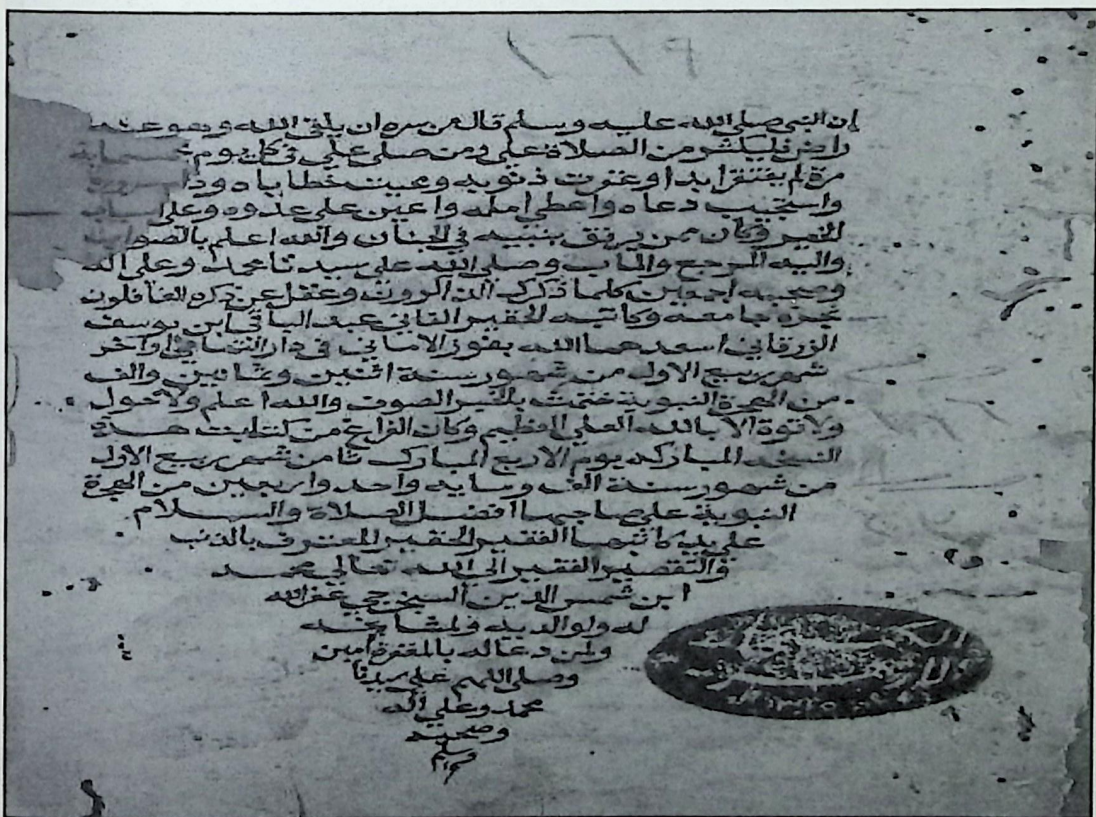 إن النبي صلى الله عليه وسلم قال من سره ان يلقى الله وهو عنه
راض فليكثر من الصلاة علي ومن صلى علي في كل يوم خمسماية
مرة لم يفتقر ابدا وغفرت ذنوبه ومحيت خطاياه ودام سروره
واستجيب دعاه واعطي امله واعين على عدوه وعلى اسباب
الخير وكان ممن يرافق بنبيه في الجنان والله اعلم بالصواب
واليه المرجع والماب وصلى الله على سيدنا محمد وعلى اله
وصحبه اجمعين كلما ذكرك الذاكرون وغفل عن ذكره الغافلون
نجزه جامعه وكاتبه الحقير الفاني عبد الباقي ابن يوسف
الزرقاني اسعدهما الله بفوز الاماني في دار التهاني اواخر
شهر ربيع الاول من شهور سنة اثنين وثمانين والف
من الهجرة النبوية ختمت بالخير الصوت والله اعلم ولا حول
ولا قوة الا بالله العلي العظيم وكان الفراغ من كتابت هذه
النسخه المباركه يوم الاربع المبارك ثامن شهر ربيع الاول
من شهور سنة الف ومايه واحد واربعين من الهجرة
النبوية على صاحبها افضل الصلاة والسلام
على يد كاتبها الفقير الحقير المعترف بالذنب
والتقصير الفقير الى الله تعالى محمد
ابن شمس الدين السيخرجي غفر الله
له ولوالديه ولمشايخه
ولمن دعا له بالمغفرة امين
وصلى اللهم على سيدنا
محمد وعلى اله
وصحبه
وسلم